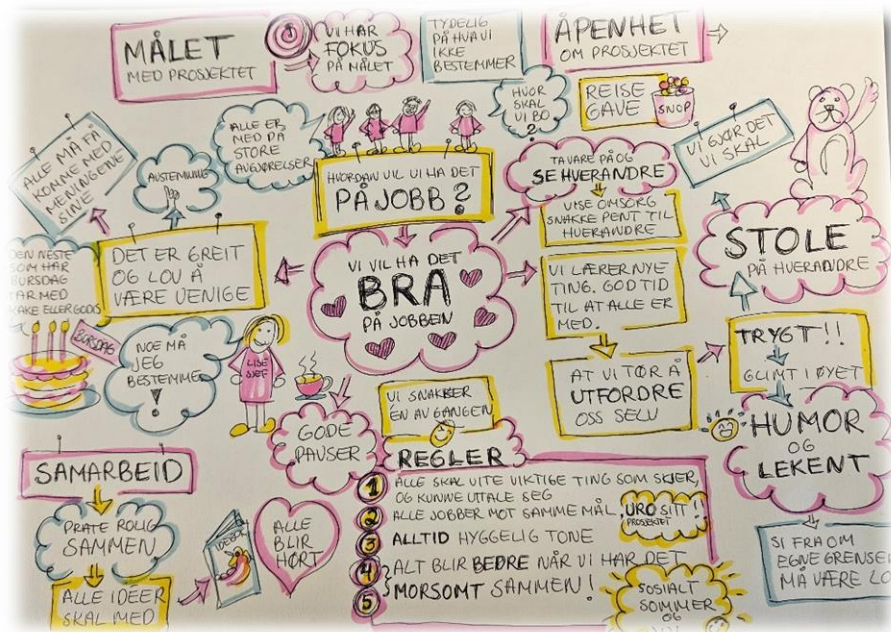 MÅLET
MED PROSJEKTET
VI HAR
FOKUS
PÅ MÅLET
TYDELIG
PÅ HVA VI
IKKE
BESTEMMER
ÅPENHET
OM PROSJEKTET
HVOR
SKAL
VI BO
?
REISE
GAVE
SNOP
VI GJØR DET
VI SKAL
ALLE MÅ FÅ
KOMME MED
MENINGENE
SINE
AVSTEMNING
ALLE ER
MED PÅ
STORE
AVGJØRELSER
HVORDAN VIL VI HA DET
PÅ JOBB?
TA VARE PÅ OG
SE HVERANDRE
VISE OMSORG
SNAKKE PENT TIL
HVERANDRE
STOLE
PÅ HVERANDRE
DEN NESTE
SOM HAR
BURSDAG
TAR MED
KAKE ELLER GODIS
BURSDAG
DET ER GREIT
OG LOV Å
VÆRE UENIGE
VI VIL HA DET
BRA
PÅ JOBBEN
VI LÆRER NYE
TING. GOD TID
TIL AT ALLE ER
MED.
TRYGT!!
GLIMT I ØYET
NOE MÅ
JEG
BESTEMME
!
LISE
SJEF
AT VI TØR Å
UTFORDRE
OSS SELV
HUMOR
OG
LEKENT
VI SNAKKER
ÉN AV GANGEN
GODE
PAUSER
REGLER
1 ALLE SKAL VITE VIKTIGE TING SOM SKJER,
OG KUNNE UTALE SEG
2 ALLE JOBBER MOT SAMME MÅL,
URO SITT!
PROSJEKTET
3 ALLTID HYGGELIG TONE
4 ALT BLIR BEDRE NÅR VI HAR DET
5 MORSOMT SAMMEN!
SAMARBEID
PRATE ROLIG
SAMMEN
ALLE IDÉER
SKAL MED
IDEBOK
ALLE
BLIR
HØRT
SOSIALT
SOMMER
OG
SI FRA OM
EGNE GRENSER
MÅ VÆRE